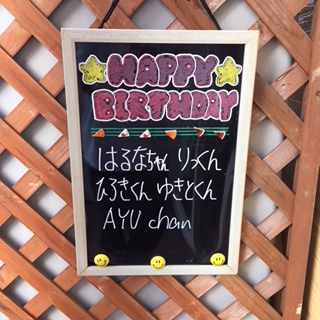 HAPPY
BIRTHDAY
はるなちゃん りっくん
ひろきくん ゆきとくん
AYU chan